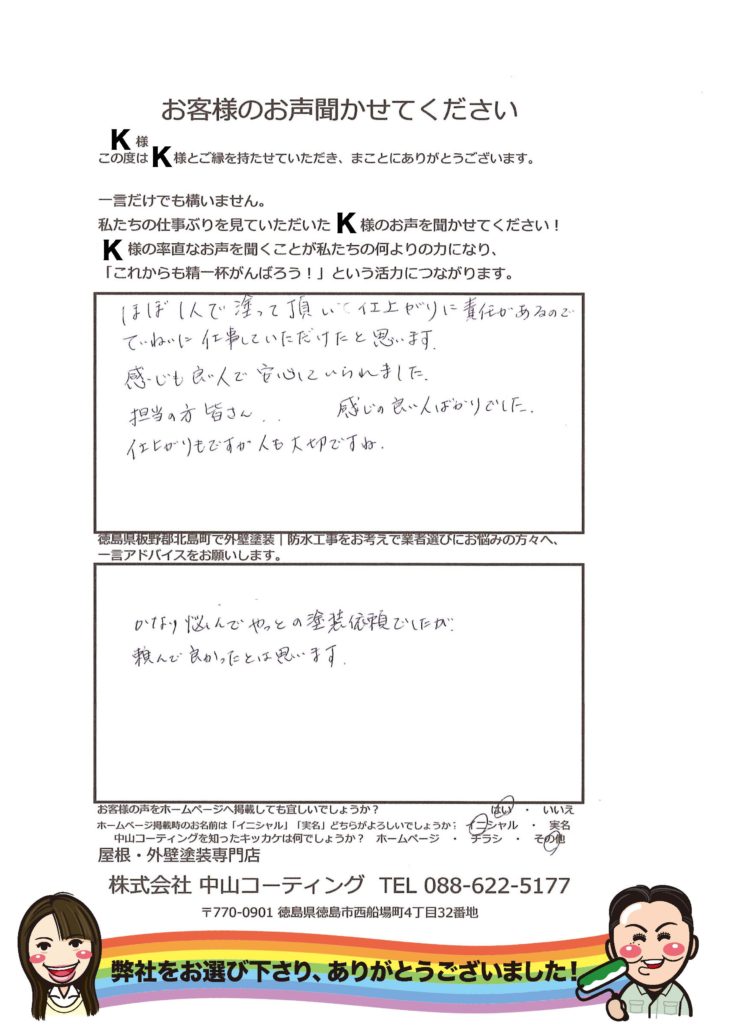 お客様のお声聞かせてください
K 様
この度は K 様とご縁を持たせていただき、まことにありがとうございます。
一言だけでも構いません。
私たちの仕事ぶりを見ていただいた K 様のお声を聞かせてください！
K 様の率直なお声を聞くことが私たちの何よりの力になり、
「これからも精一杯がんばろう！」という活力につながります。
ほぼ1人で塗って頂いて仕上がりに責任があるので
ていねいに仕事していただけたと思います。
感じも良い人で安心していられました。
担当の方皆さん．．感じの良い人ばかりでした。
仕上がりもですが人も大切ですね。
徳島県板野郡北島町で外壁塗装｜防水工事をお考えで業者選びにお悩みの方々へ、
一言アドバイスをお願いします。
かなり悩んでやっとの塗装依頼でしたが、
頼んで良かったとは思います。
お客様の声をホームページへ掲載しても宜しいでしょうか？ はい ・ いいえ
ホームページ掲載時のお名前は「イニシャル」「実名」どちらがよろしいでしょうか？ イニシャル ・ 実名
中山コーティングを知ったキッカケは何でしょうか？ ホームページ ・ チラシ ・ その他
屋根・外壁塗装専門店
株式会社 中山コーティング TEL 088-622-5177
〒770-0901 徳島県徳島市西船場町4丁目32番地
弊社をお選び下さり、ありがとうございました！